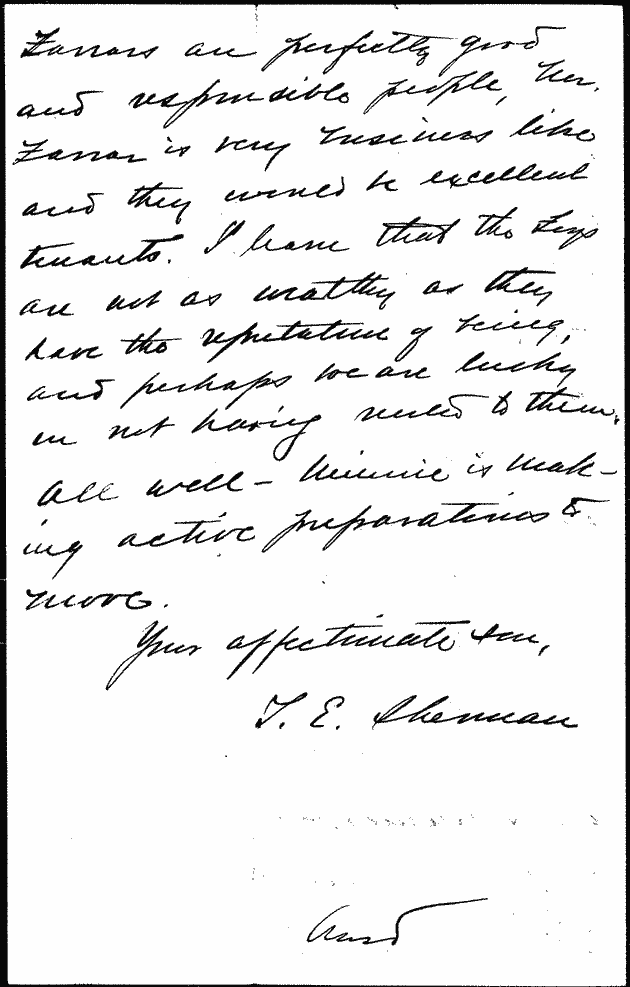 Farrars are perfectly good
and responsible people, Mr.
Farrar is very business like
and they would be excellent
tenants. I learn that the
are not as wealthy as they
have the reputation of being,
and perhaps we are lucky
in not having rented to them.
All well – Minnie is mak-
ing active preparations to
move.
Your affectionate Son,
T. E. Sherman